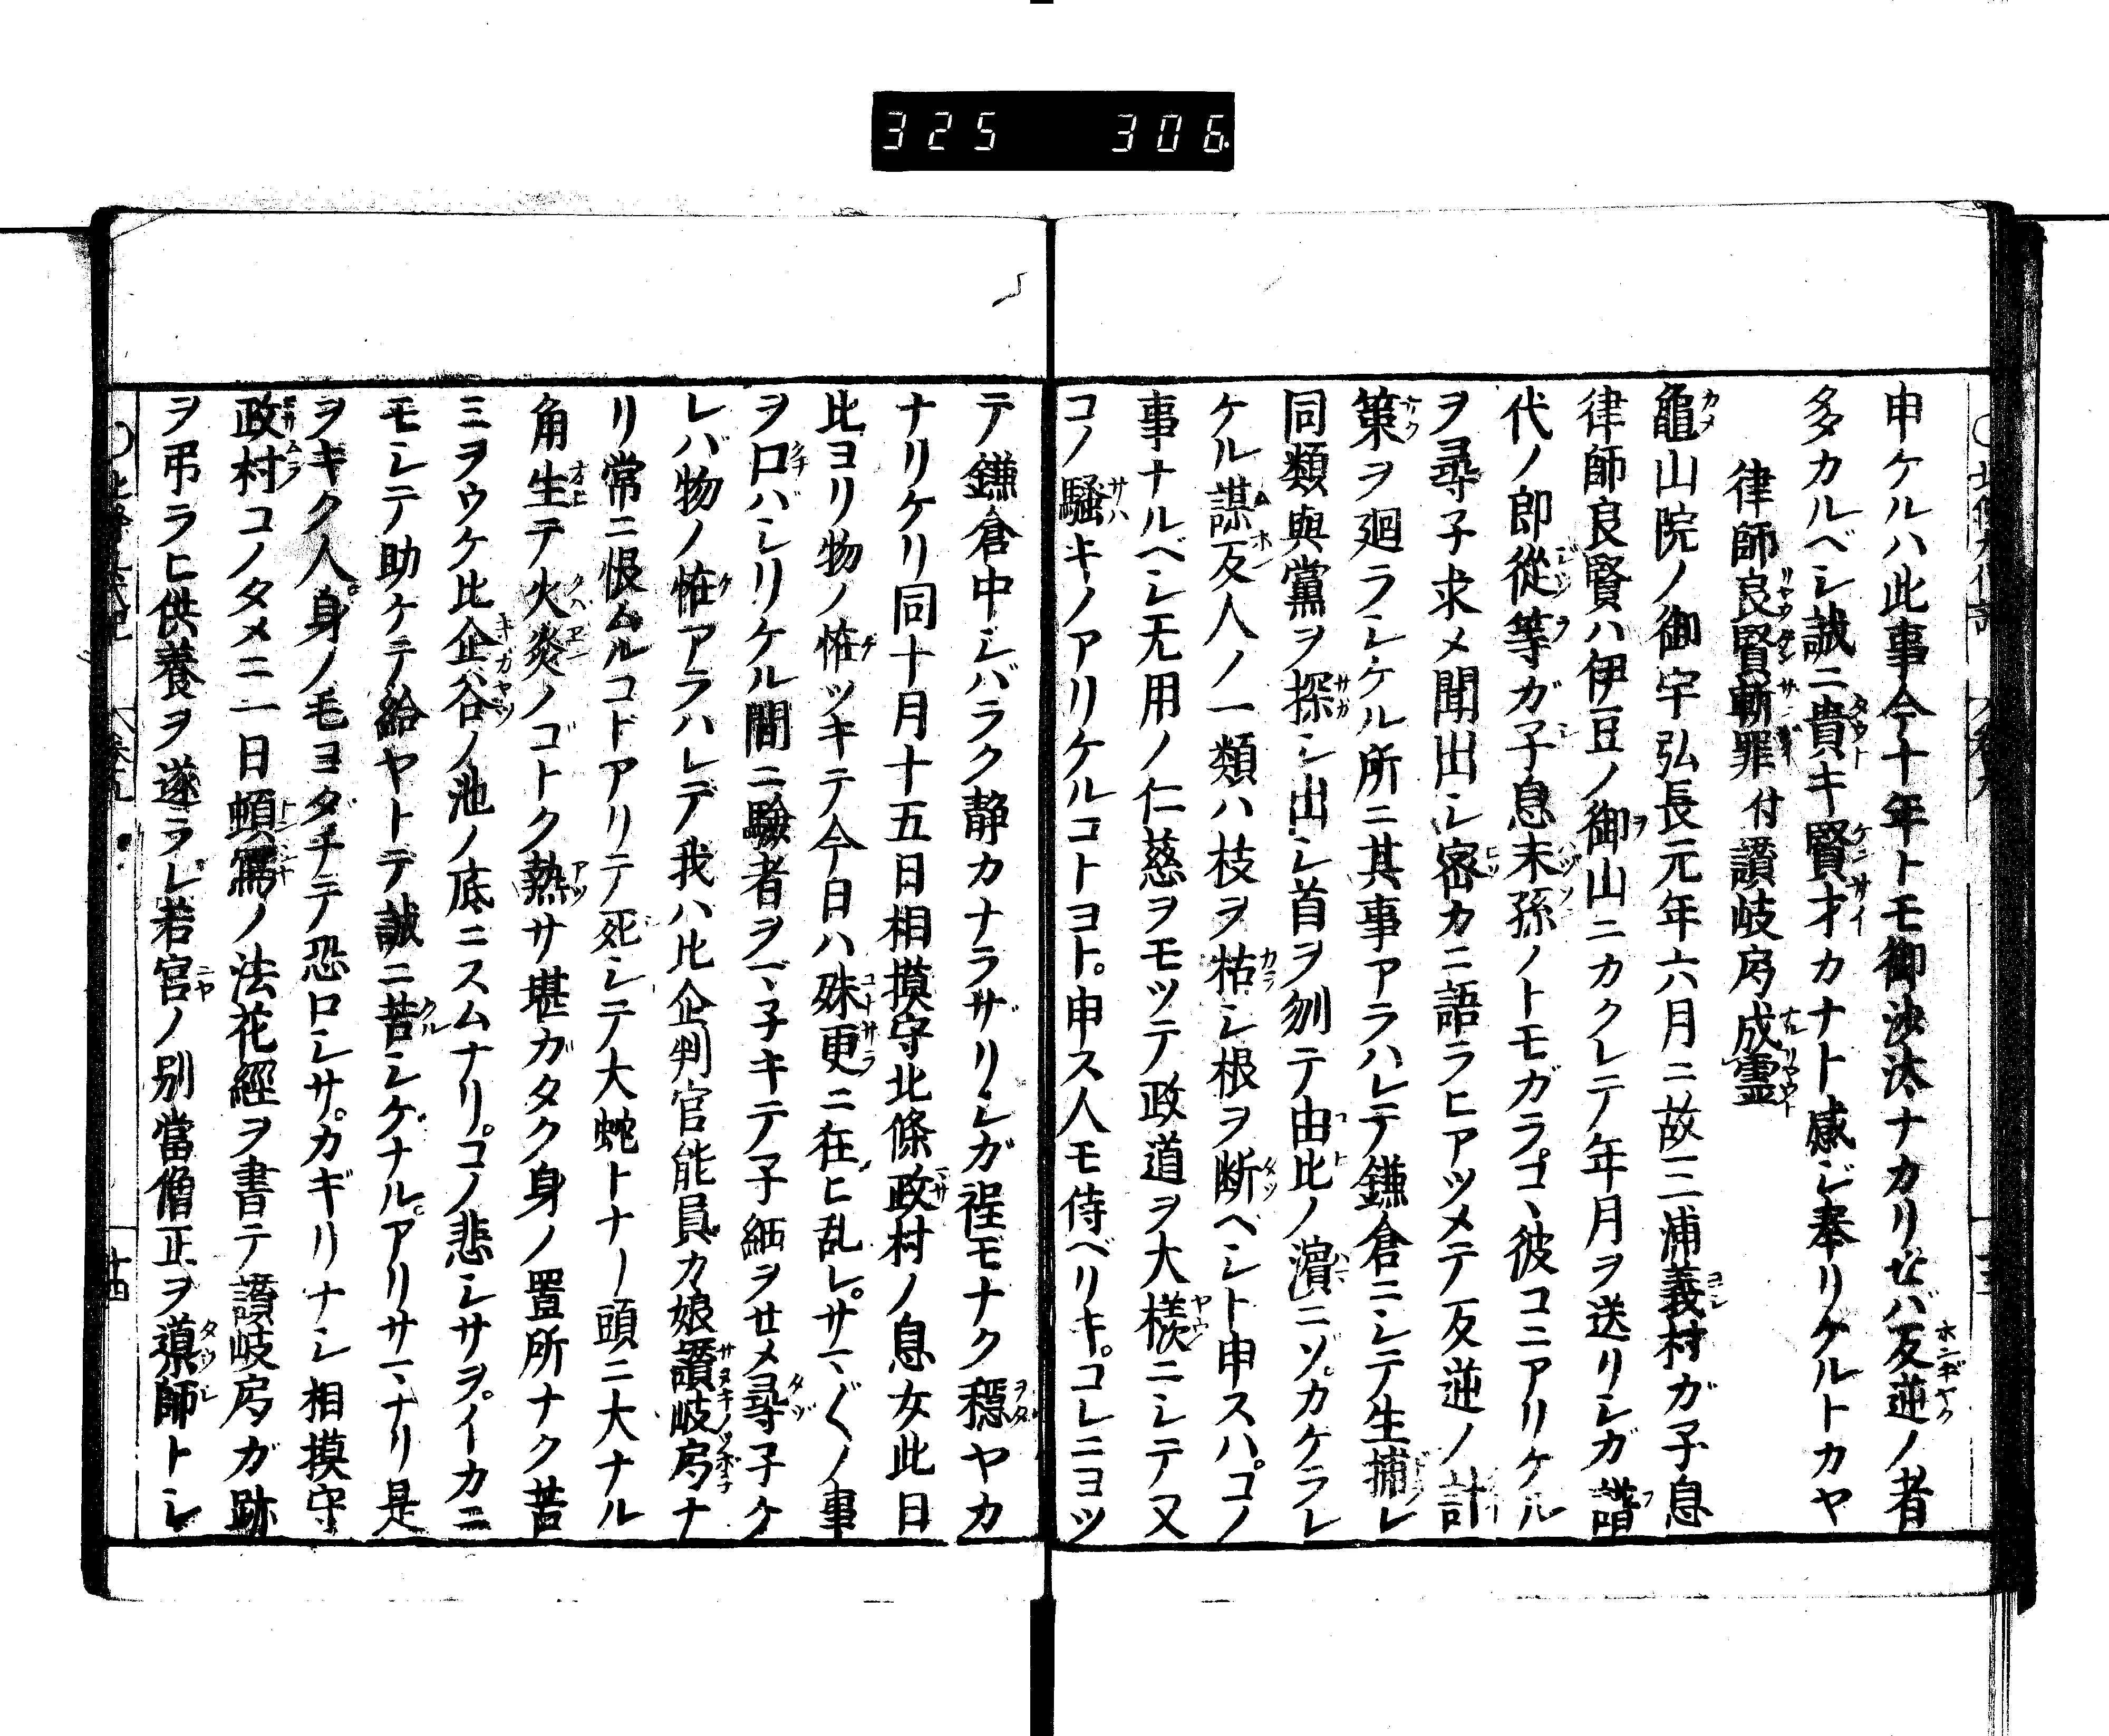 325 306
申ケルハ此事今十年トモ御沙汰ナカリセバ反逆ノ者
多カルベシ誠ニ貴キ賢才カナト感ジ奉リケルトカヤ
律師良賢斬罪付讃岐房成霊
龜山院ノ御宇弘長元年六月ニ故三浦義村ガ子息
律師良賢ハ伊豆ノ御山ニカクレテ年月ヲ送リシガ譜
代ノ郎從等ガ子息末孫ノトモガラコヽ彼コニアリケル
ヲ尋子求メ聞出シ密カニ語ラヒアツメテ反逆ノ計
策ヲ廻ラシケル所ニ其事アラハレテ鎌倉ニシテ生捕レ
同類與黨ヲ探シ出シ首ヲ刎テ由比ノ濵ニゾカケラレ
ケル謀反人ノ一類ハ枝ヲ枯シ根ヲ断ベシト申スハコノ
事ナルベシ无用ノ仁慈ヲモツテ政道ヲ大樣ニシテ又
コノ騷キノアリケルコトヨト申ス人モ侍ベリキコレニヨツ
テ鎌倉中シバラク静カナラザリシガ程モナク穩ヤカ
ナリケリ同十月十五日相摸守北條政村ノ息女此日
比ヨリ物ノ恠ツキテ今日ハ殊更ニ狂ヒ乱レサマ〲ノ事
ヲ口バシリケル間ニ驗者ヲマ子キテ子細ヲせメ尋子ケ
レバ物ノ恠アラハレデ我ハ比企判官能員カ娘讃岐房ナ
リ常ニ恨ムルコトアリテ死シテ大蛇トナノ頭ニ大ナル
角生テ火炎ノゴトク熱サ堪ガタク身ノ置所ナク苦
ミヲウケ比企谷ノ池ノ底ニスムナリコノ悲シサヲイカニ
モシテ助ケテ給ヤトテ誠ニ苦シゲナルアリサマナリ是
ヲキク人身ノ毛ヨダチテ恐ロシサカギリナシ相摸守
政村コノタメニ一日頓寫ノ法花經ヲ書テ讃岐房ガ跡
ヲ弔ラヒ供養ヲ遂ラレ若宮ノ別當僧正ヲ導師トシ
十四